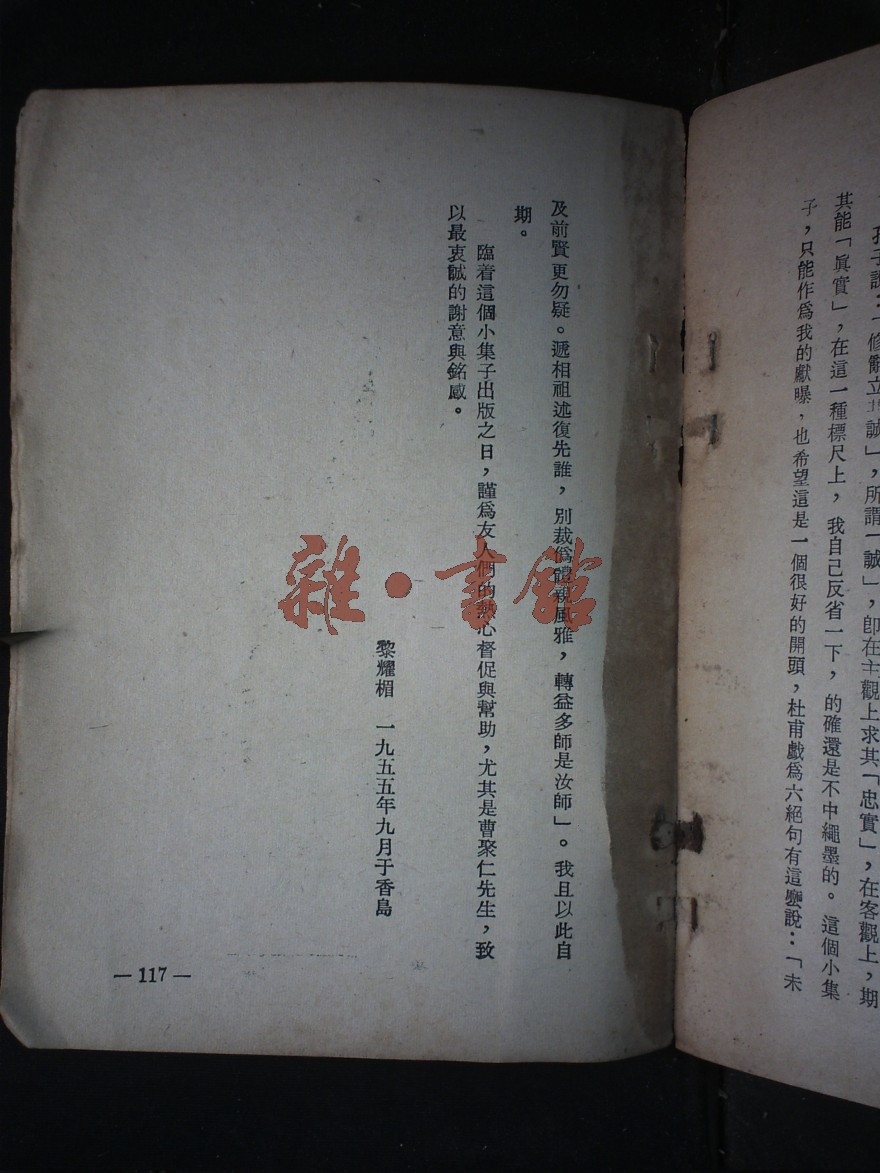 孔子說：「修辭立其誠」，所謂「誠」，卽在主觀上求其「忠實」，在客觀上，期
其能「眞實」，在這一種標尺上，我自己反省一下，的確還是不中繩墨的。這個小集
子，只能作爲我的獻曝，也希望這是一個很好的開頭，杜甫戲爲六絕句有這麽說：「未
及前賢更勿疑。遞相祖述復先誰，別裁僞體親風雅，轉益多師是汝師」。我且以此自
期。
臨着這個小集子出版之日，謹爲友人們的熱心督促與幫助，尤其是曹聚仁先生，致
以最衷誠的謝意與銘感。
黎耀楣　一九五五年九月于香島
—117—
雜·書館